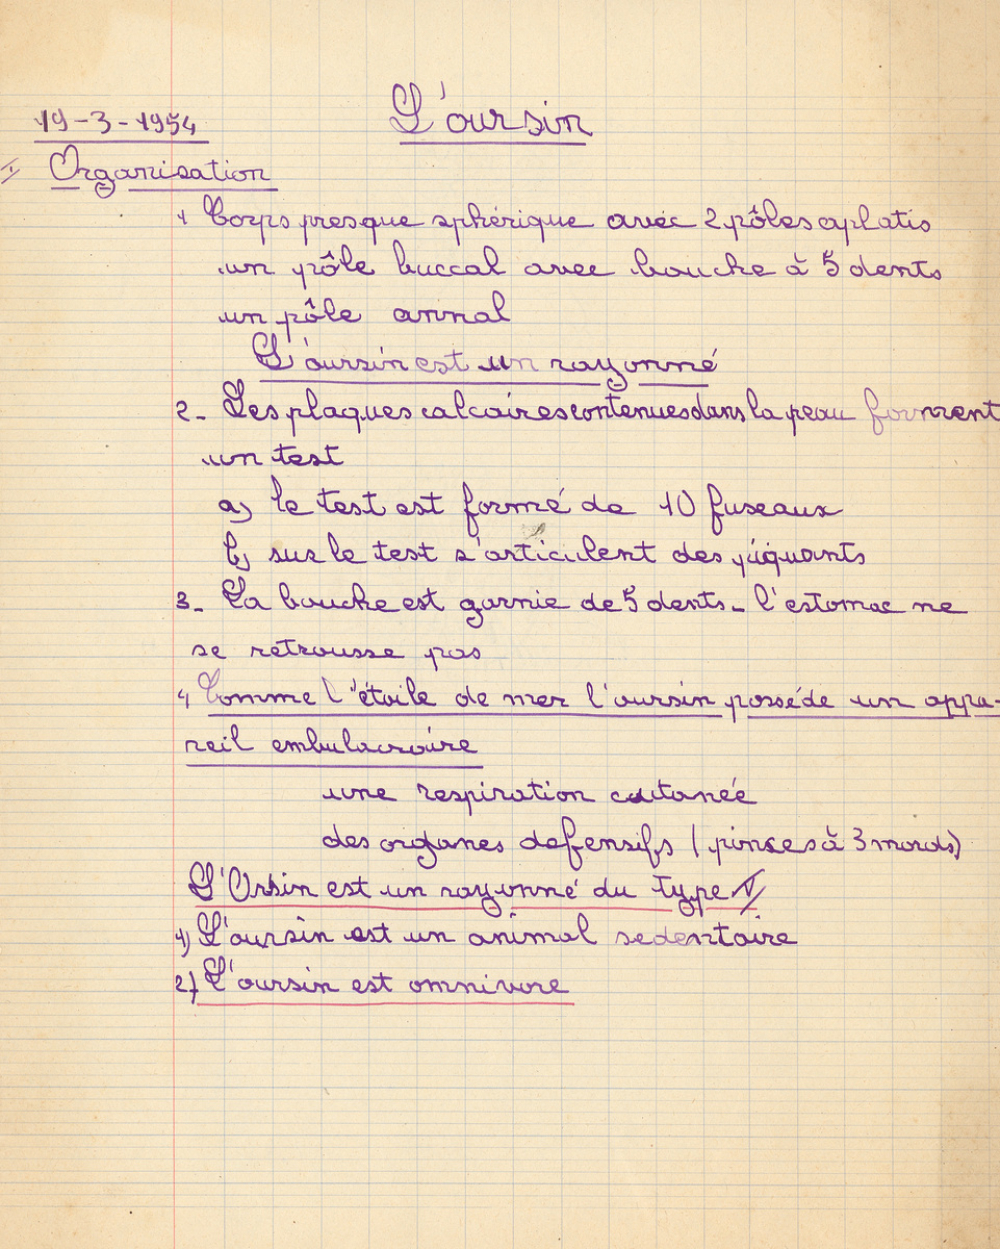 19-3-1954
L'oursin
I Organisation
1 Corps presque sphérique avec 2 pôles aplatis
un pôle buccal avec bouche à 5 dents
un pôle annal
L'oursin est un rayonné
2- Les plaques calcaires contenues dans la peau forment
un test
a) le test est formé de 10 fuseaux
b) sur le test s'articulent des piquants
3- La bouche est garnie de 5 dents- l'estomac ne
se retrousse pas
4 Comme l'étoile de mer l'oursin posséde un appa-
reil embulacraire
une respiration cutanée
des organes defensifs (pinses à 3 mords)
L'Orsin est un rayonné du type V
1) L'oursin est un animal sedentaire
2) L'oursin est omnivore